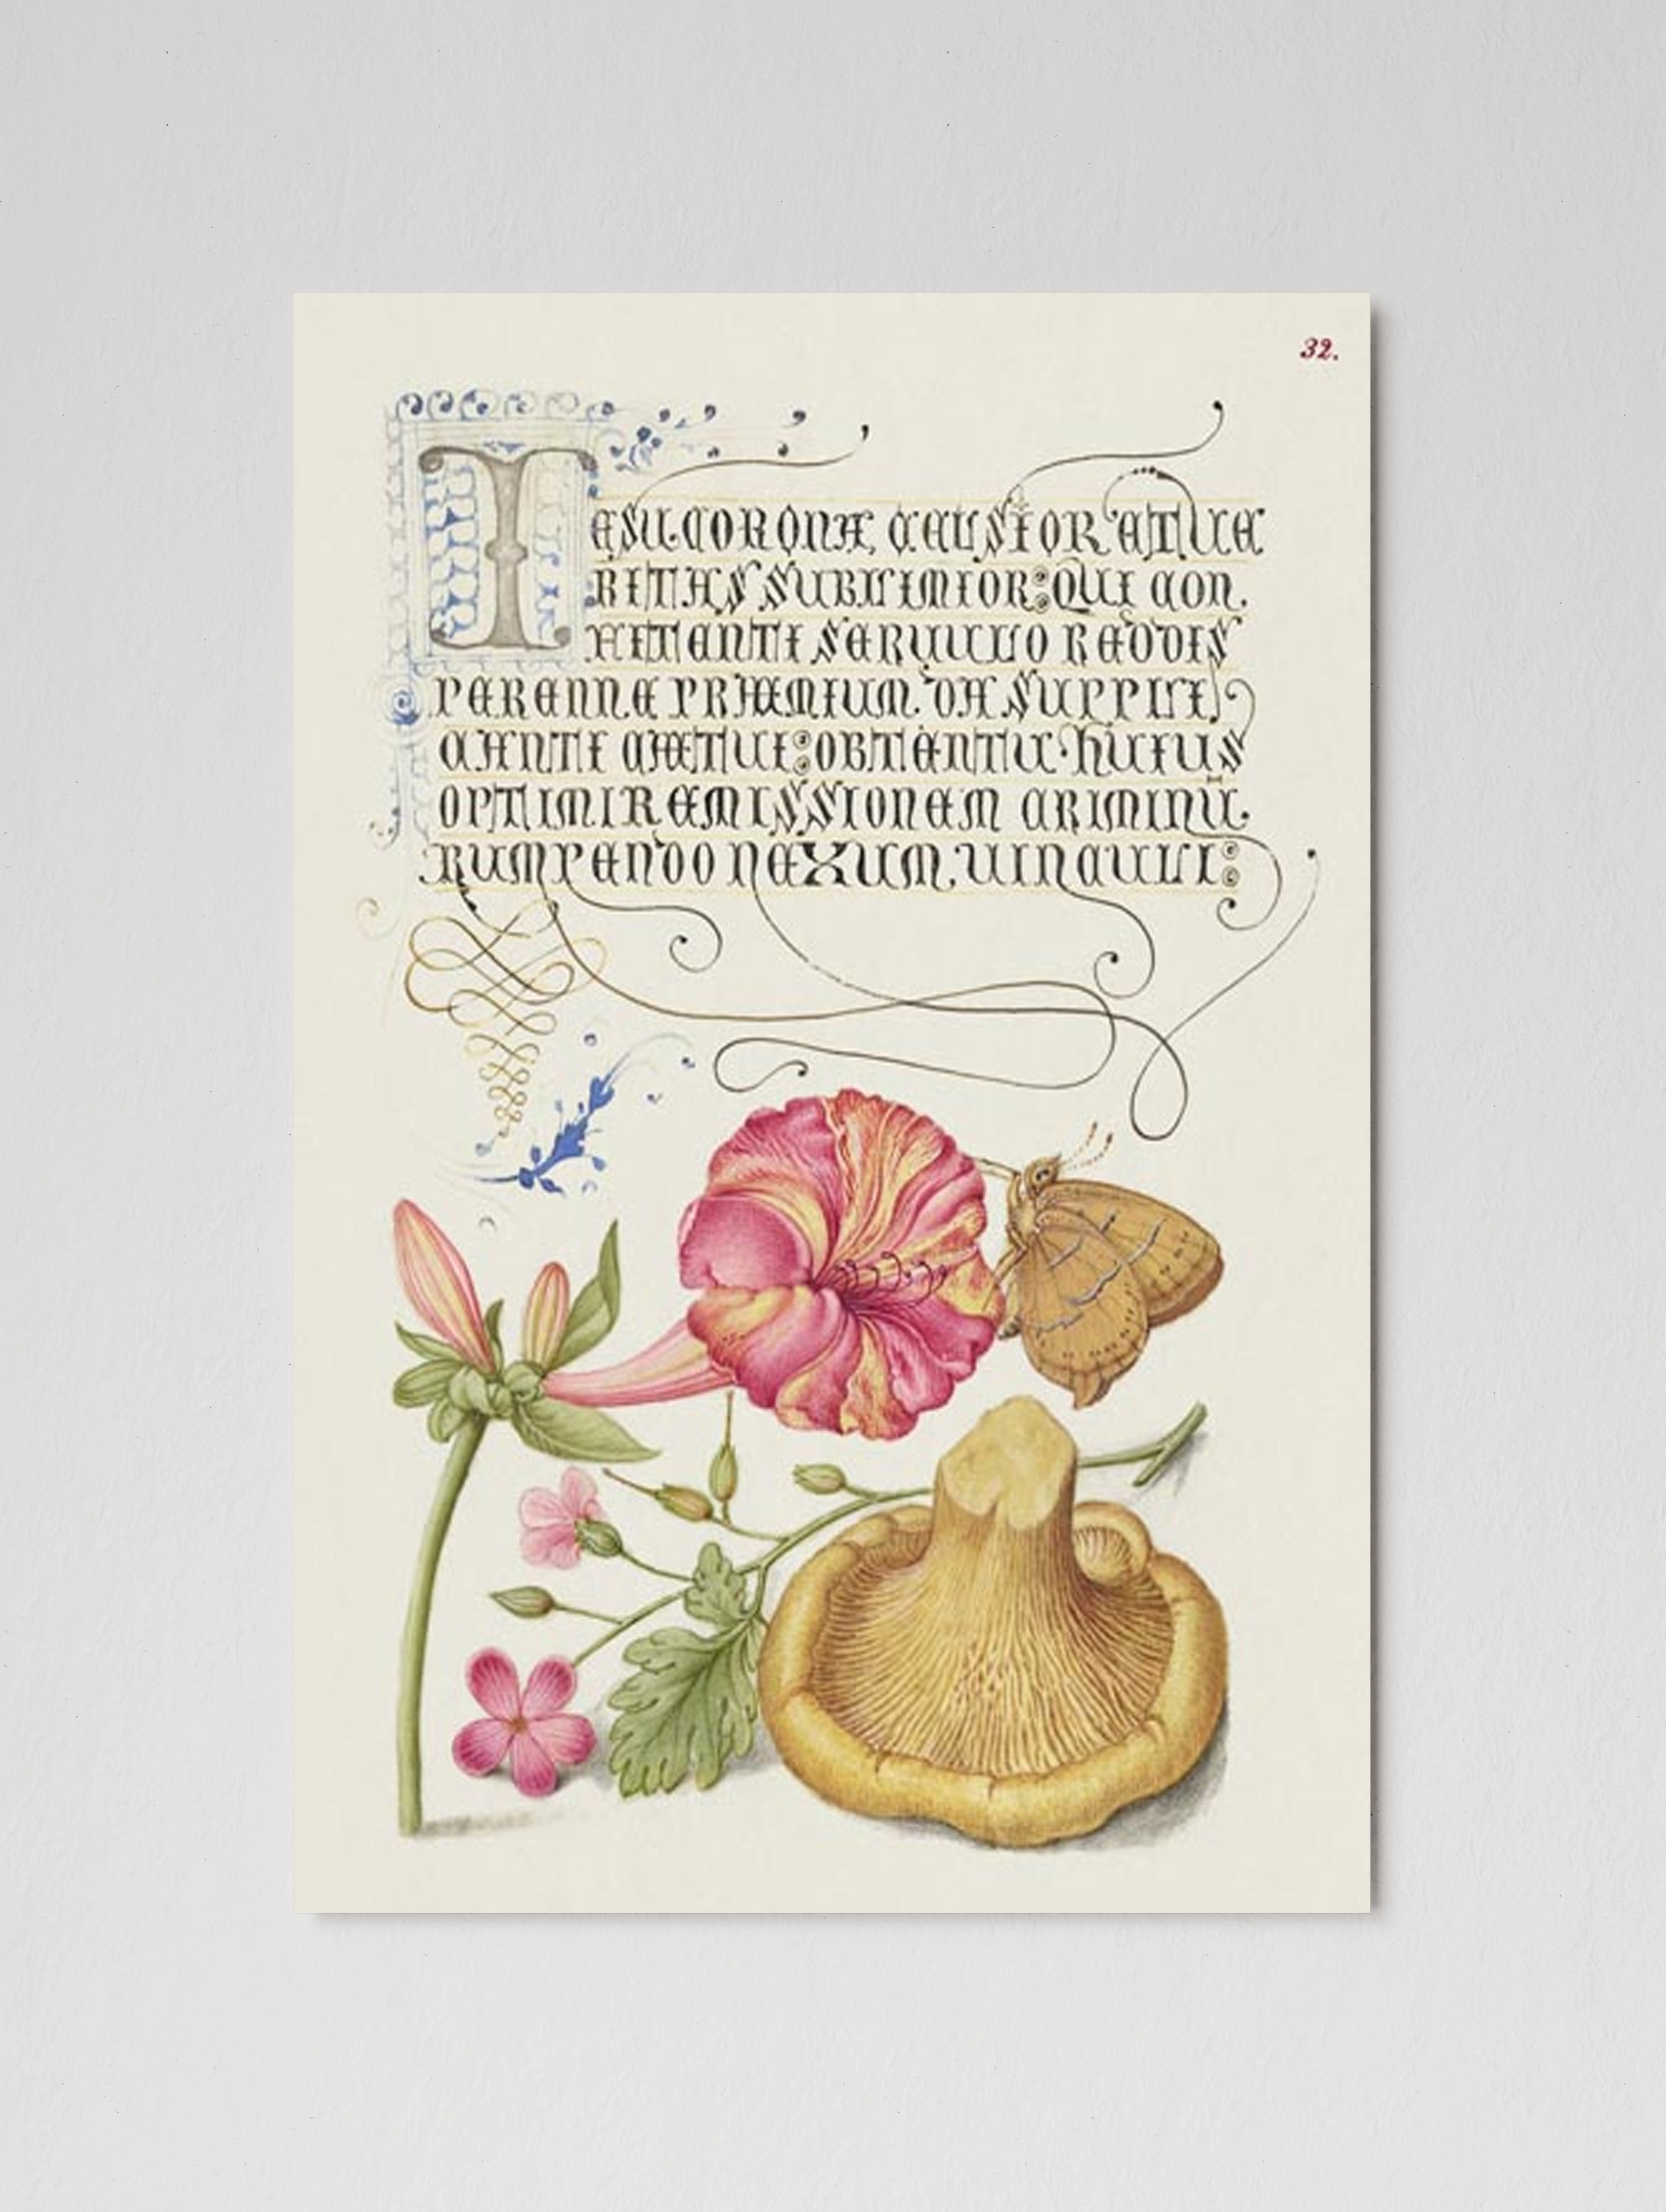 32.
IESU CORONA CELSIOR ET UE
RITAS SUBLIMIOR: QUI CON
FITENTI SERUULO REDDIS
PERENNE PRÆMIUM. DA SUPPLI
CANTI CÆTUI: OBTENTU HUIUS
OPTIMI REMISSIONEM CRIMINŪ.
RUMPENDO NEXUM UINCULI: